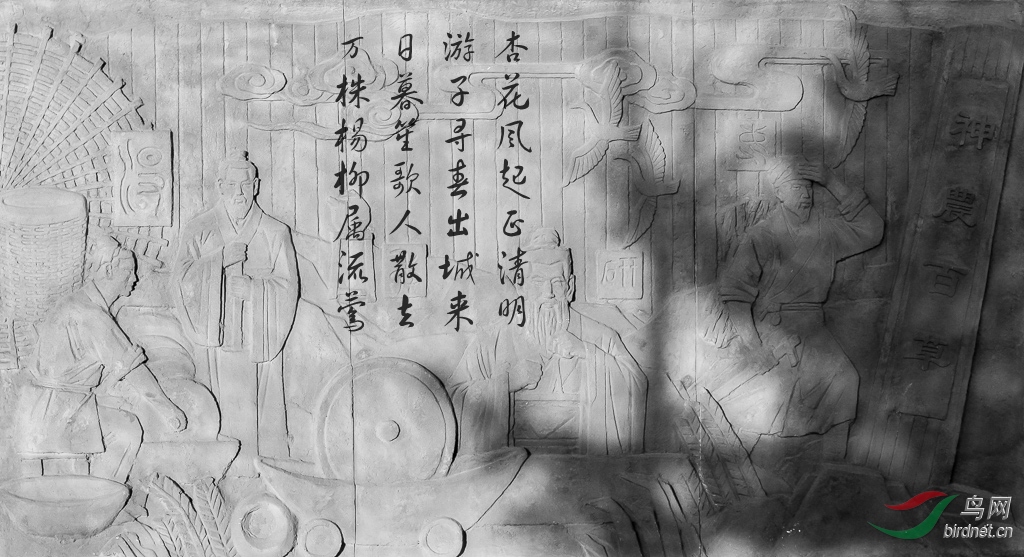 神農百草
杏花风起正清明
游子寻春出城来
日暮笙歌人散去
万株杨柳属流莺
研
鸟网
birdnet.cn